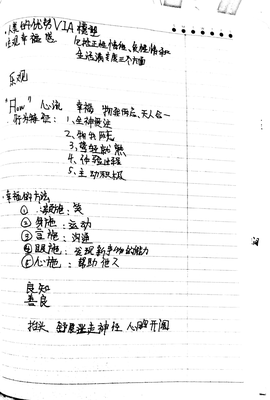 ·人类的优势VIA模型
·主观幸福感 包括正性情绪、负性情绪和
生活满意度三个方面
乐观
"Flow" 心流 幸福 物我两忘、天人合一
行为特征：1、全神贯注
2、物我两忘
3、驾轻就熟
4、体验过程
5、主动积极
·幸福的方法
① 颜施：笑
② 身施：运动
③ 言施：沟通
④ 眼施：发现新事物的能力
⑤ 心施：帮助他人
良知
善良
抬头 舒展迷走神经 心胸开阔